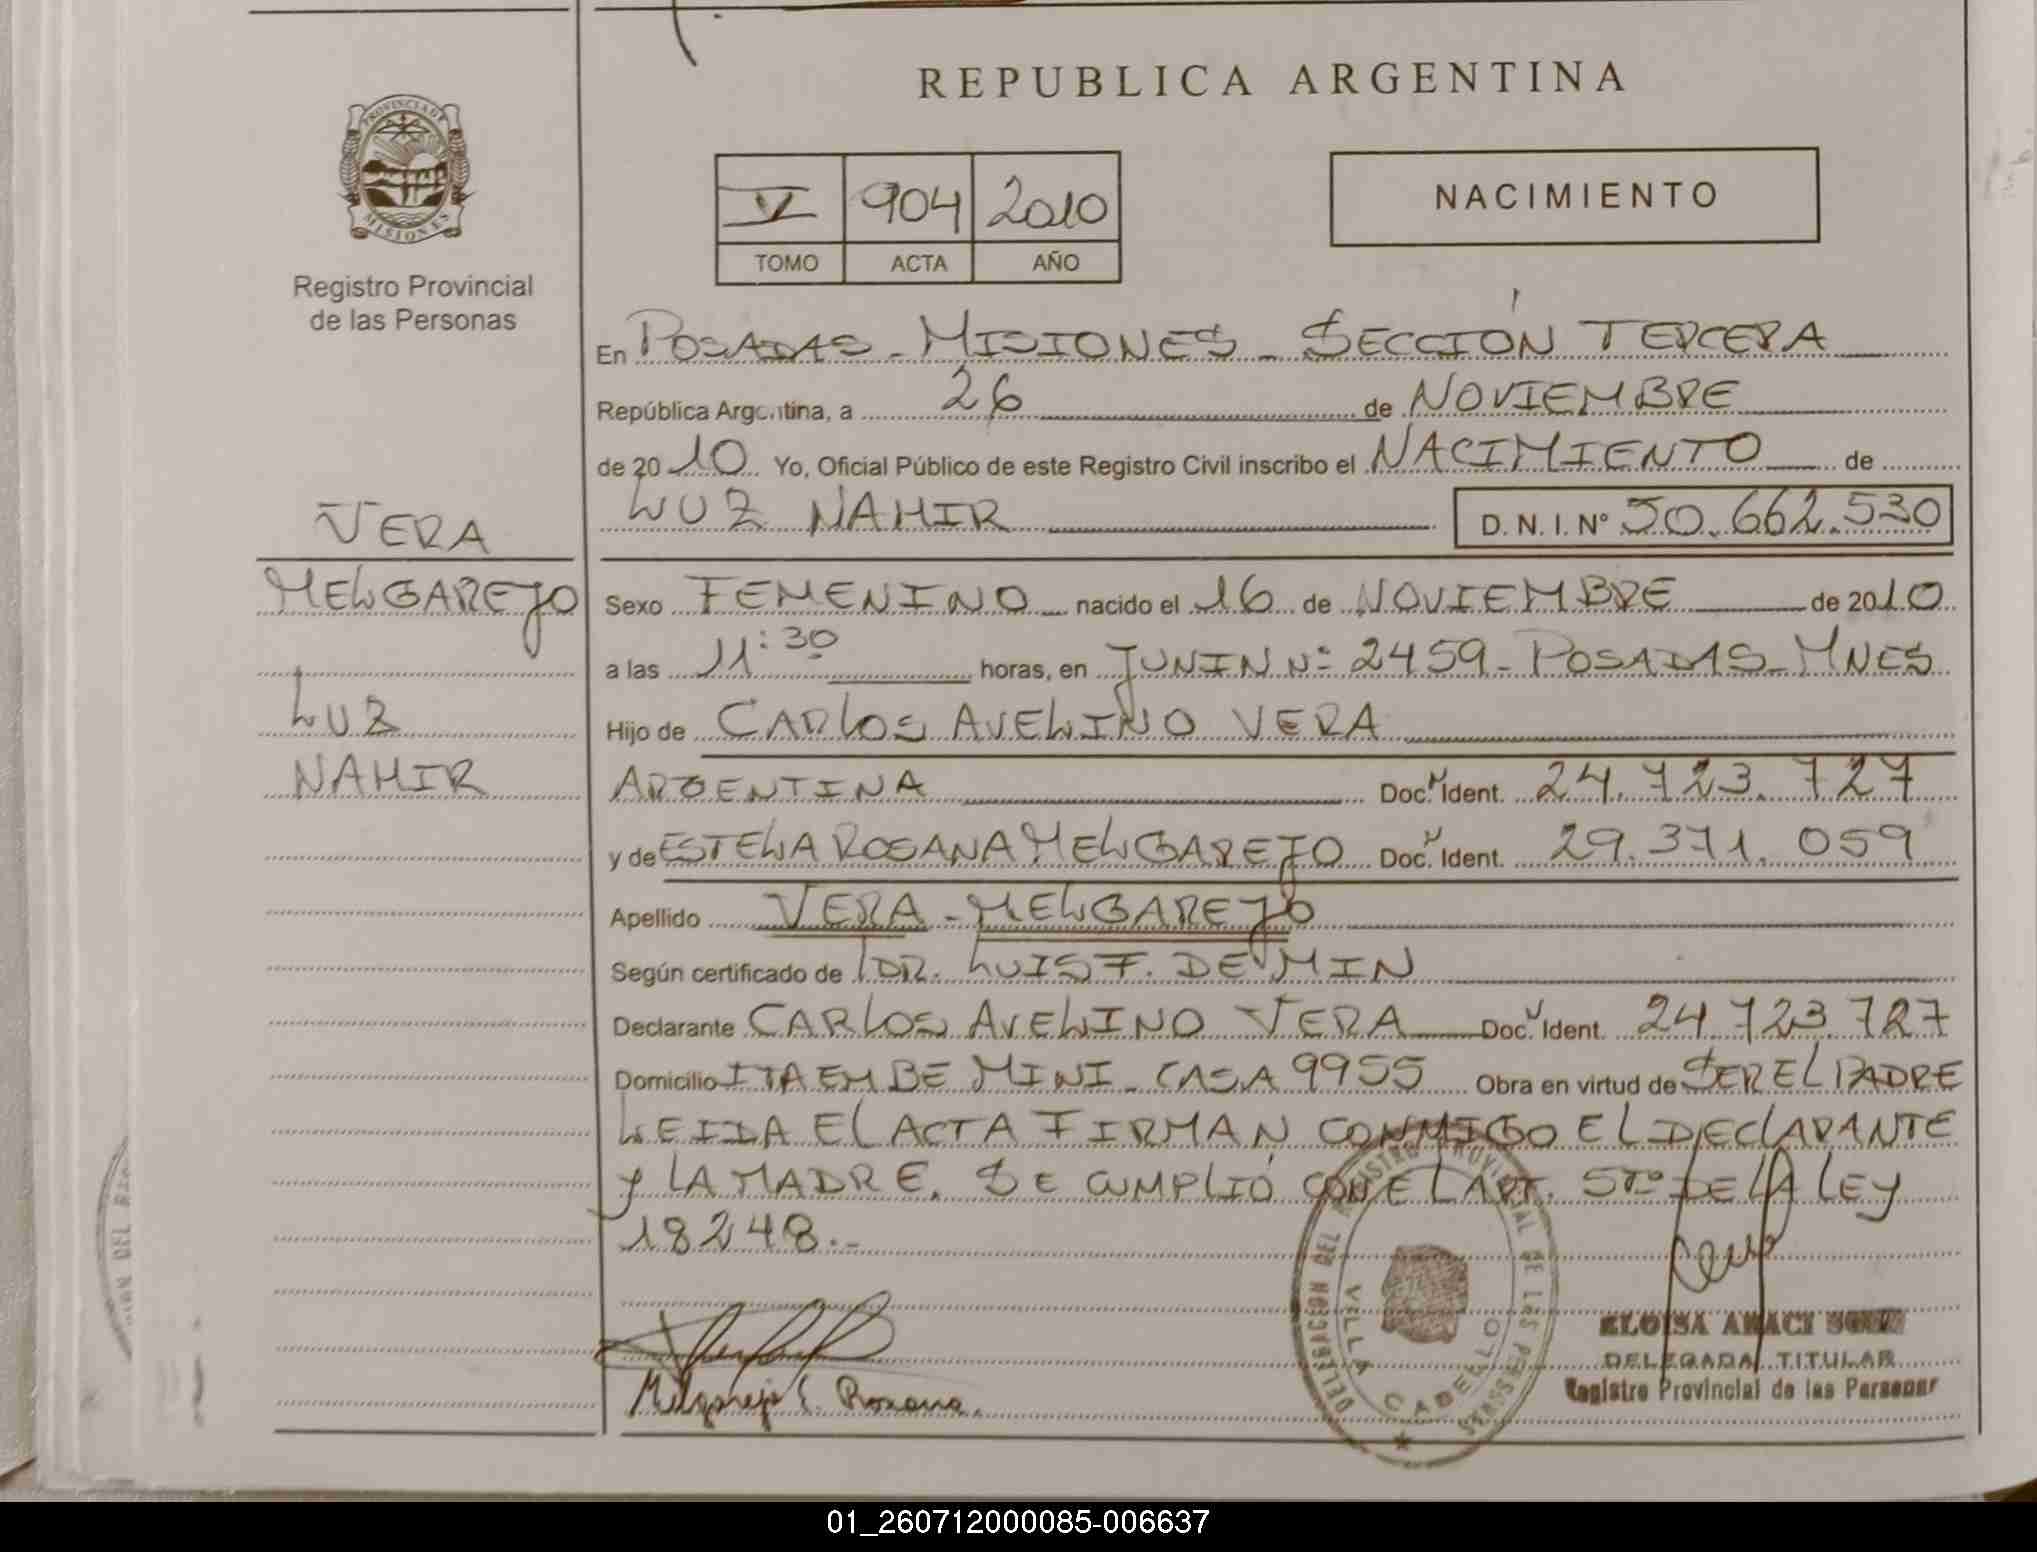 REPUBLICA ARGENTINA
PROVINCIA DE
MISIONES
Registro Provincial
de las Personas
V 904 2010
TOMO ACTA AÑO
NACIMIENTO
En POSADAS - MISIONES - SECCIÓN TERCERA
República Argentina, a 26 de NOVIEMBRE
de 2010 Yo, Oficial Público de este Registro Civil inscribo el NACIMIENTO de
LUZ NAHIR D. N. I. N° 50.662.530
VERA
MELGAREJO
LUZ
NAHIR
Sexo FEMENINO nacido el 16 de NOVIEMBRE de 2010
a las 11:30 horas, en JUNIN N° 2459 - POSADAS - MNES
Hijo de CARLOS AVELINO VERA
ARGENTINA Doc. Ident. 24.723.727
y de ESTELA ROSANA MELGAREJO Doc. Ident. 29.371.059
Apellido VERA - MELGAREJO
Según certificado de DR. LUIS F. DE MIN
Declarante CARLOS AVELINO VERA Doc. Ident. 24.723.727
Domicilio ITAEMBE MINI - CASA 9955 Obra en virtud de SER EL PADRE
LEIDA EL ACTA FIRMAN CONMIGO EL DECLARANTE
y LA MADRE. SE CUMPLIÓ CON EL ART. 5TO DE LA LEY
18248.-
Melgarejo E. Rosana.
DELEGACION DEL REGISTRO PROVINCIAL DE LAS PERSONAS
VILLA CABELLO
ELOISA ARACI
DELEGADA TITULAR
Registro Provincial de las Personas
01_260712000085-006637